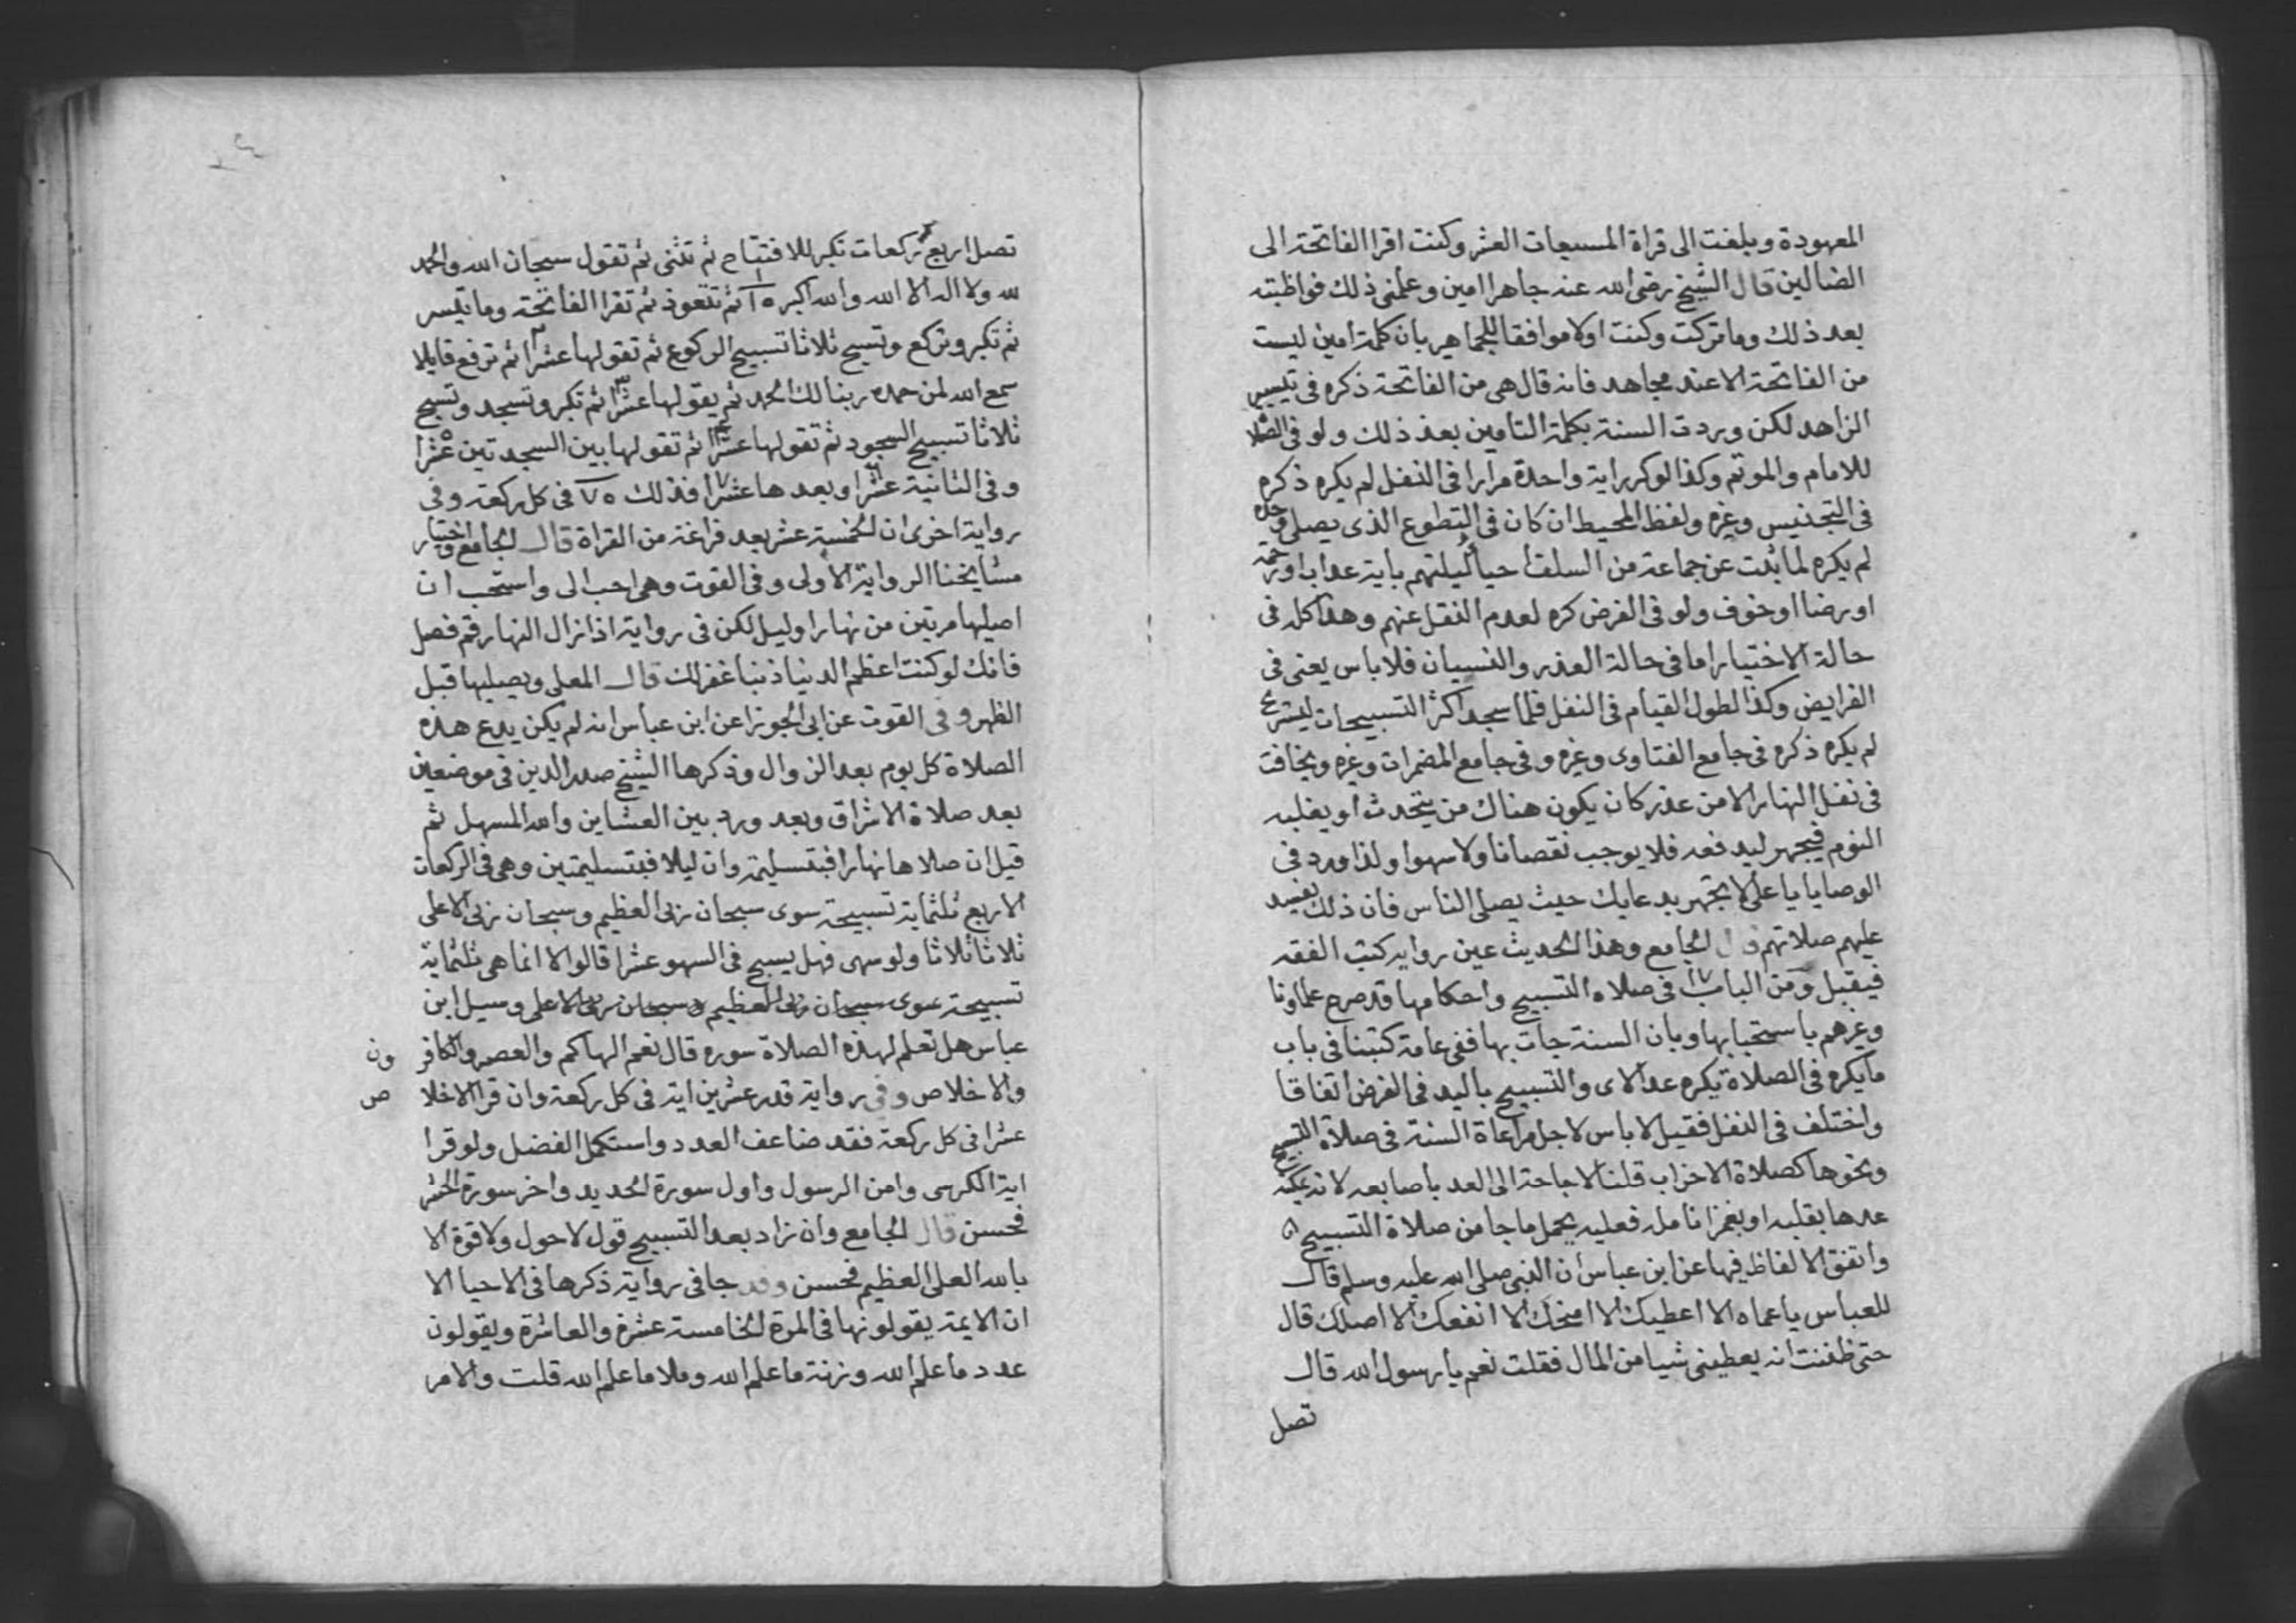 المعهودة وبلغت الى قراة المسبعات العشر وكنت اقرا الفاتحة الى
الضالين قال الشيخ رضى الله عنه جاهرا امين وعلمنى ذلك فواظبته
بعد ذلك وما تركت وكنت اولا موافقا للجماهير بان كلمة امين ليست
من الفاتحة الا عند مجاهد فانه قال هى من الفاتحة ذكره فى تيسير
الزاهد لكن وردت السنة بكلمة التامين بعد ذلك ولو فى الصلا
للامام والموتم وكذا لو كرر اية واحدة مرارا فى النفل لم يكره ذكره
فى التجنيس وغيره ولفظ المحيط ان كان فى التطوع الذى يصلى وحده
لم يكره لما ثبت عن جماعة من السلف احيا ليلتهم باية عذاب او رحمة
او رضا او خوف ولو فى الفرض كره لعدم النقل عنهم وهذا كله فى
حالة الاختيار اما فى حالة العذر والنسيان فلا باس يعنى فى
الفرايض وكذا لطول القيام فى النفل فلما سجد اكثر التسبيحات ليشرع
لم يكره ذكره فى جامع الفتاوى وغيره وفى جامع المضمرات وغيره ويخافت
فى نفل النهار الا من عذر كان يكون هناك من يتحدث او يغلبه
النوم فيجهر ليدفعه فلا يوجب نقصانا ولا سهوا ولذا ورد فى
الوصايا يا على لا تجهر بدعايك حيث يصلى الناس فان ذلك يفسد
عليهم صلاتهم قال الجامع وهذا الحديث عين رواية كتب الفقه
فيقبل ومن الباب ١٧ فى صلاة التسبيح واحكامها قد صرح علماونا
وغيرهم باستحبابها وبان السنة جات بها ففى عامة كتبنا فى باب
ما يكره فى الصلاة يكره عد الاى والتسبيح باليد فى الفرض اتفاقا
واختلف فى النفل فقيل لا باس لاجل مراعاة السنة فى صلاة التسبيح
ونحوها كصلاة الاحزاب قلنا لا حاجة الى العد باصابعه لانه يمكنه
عدها بقلبه او بغمز انامله فعليه يحمل ما جا من صلاة التسبيح ٥
واتفق الالفاظ فيها عن ابن عباس ان النبى صلى الله عليه وسلم قال
للعباس يا عماه الا اعطيك الا امنحك الا انفعك الا اصلك قال
حتى ظننت انه يعطينى شيا من المال فقلت نعم يا رسول الله قال
تصل
تصل اربع ركعات تكبر للافتتاح ثم تثنى ثم تقول سبحان الله والحمد
لله ولا اله الا الله والله اكبر ١٥ ثم تتعوذ ثم تقرا الفاتحة وما تيسر
ثم تكبر وتركع وتسبح ثلاثا تسبيح الركوع ثم تقولها عشرا ثم ترفع قايلا
سمع الله لمن حمده ربنا لك الحمد ثم يقولها عشرا ثم تكبر وتسجد وتسبح
ثلاثا تسبيح السجود ثم تقولها عشرا ثم تقولها بين السجدتين عشرا
وفى الثانية عشرا وبعدها عشرا فذلك ٧٥ فى كل ركعة وفى
رواية اخرى ان الخمسة عشر بعد فراغه من القراة قال الجامع واختيار
مشايخنا الرواية الاولى وفى القوت وهى احب الى واستحب ان
اصليها مرتين من نهار او ليل لكن فى رواية اذا زال النهار قم فصل
فانك لو كنت اعظم الدنيا ذنبا غفر لك قال المعلى ويصليها قبل
الظهر وفى القوت عن ابى الجوزا عن ابن عباس انه لم يكن يدع هذه
الصلاة كل يوم بعد الزوال وذكرها الشيخ صدر الدين فى موضعين
بعد صلاة الاشراق وبعد ورد بين العشاين والله المسهل ثم
قيل ان صلاها نهارا فبتسليمة وان ليلا فبتسليمتين وهى فى الركعات
الاربع ثلثماية تسبيحة سوى سبحان ربى العظيم وسبحان ربى الاعلى
ثلاثا ثلاثا ولو سهى فهل يسبح فى السهو عشرا قالوا لا انما هى ثلثماية
تسبيحة سوى سبحان ربى العظيم وسبحان ربى الاعلى وسيل ابن
عباس هل تعلم لهذه الصلاة سوره قال نعم الهاكم والعصر والكافرون
والاخلاص وفى رواية قدر عشرين اية فى كل ركعة وان قرا الاخلاص
عشرا فى كل ركعة فقد ضاعف العدد واستكمل الفضل ولو قرا
اية الكرسى وامن الرسول واول سورة الحديد واخر سورة الحشر
فحسن قال الجامع وان زاد بعد التسبيح قول لا حول ولا قوة الا
بالله العلى العظيم فحسن وقد جا فى رواية ذكرها فى الاحيا الا
ان الايمة يقولونها فى المرة الخامسة عشرة والعاشرة ويقولون
عدد ما علم الله وزنة ما علم الله وملا ما علم الله قلت والامر